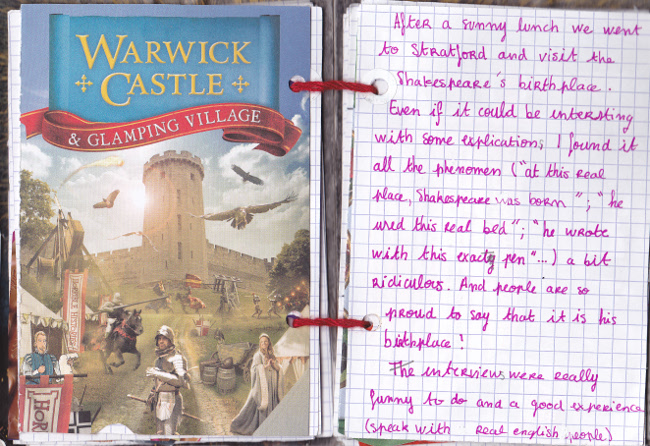 WARWICK
CASTLE
& GLAMPING VILLAGE
HOR
After a sunny lunch we went
to Stratford and visit the
Shakespeare's birthplace.
Even if it could be interesting
with some explications, I found it
all the phenomen ("at this real
place, Shakespeare was born"; "he
used this real bed"; "he wrote
with this exactly pen"...) a bit
ridiculous. And people are so
proud to say that it is his
birthplace!
The interviews were really
funny to do and a good experience
(speak with real english people)